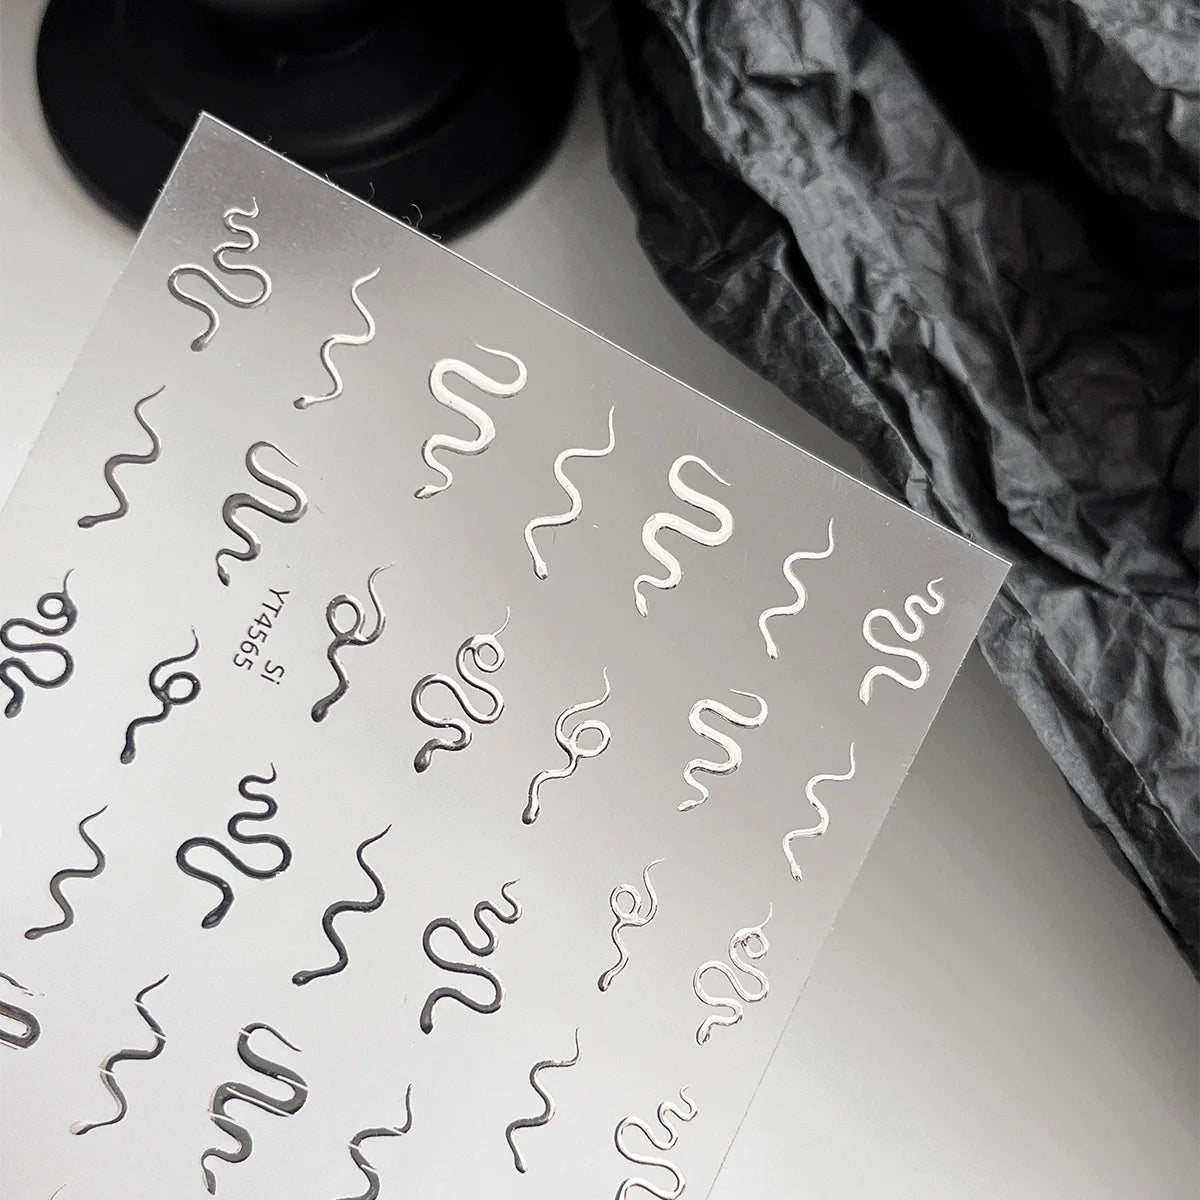 YT4565
Si